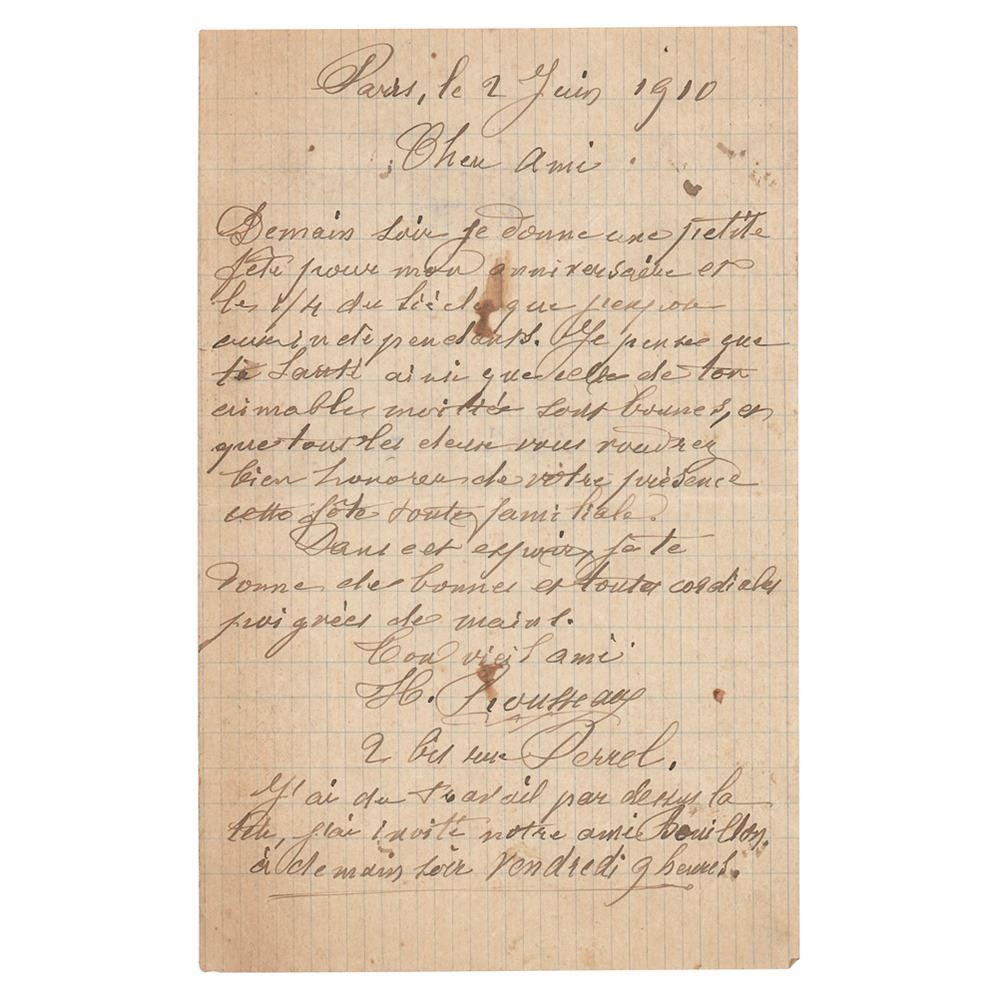 Paris, le 2 Juin 1910
Cher ami
Demain soir je donne une petite
fête pour mon anniversaire et
le 1/4 du siècle que
aux indépendants. Je pense que
ta santé ainsi que celle de ton
aimable moitiée sont bonnes, et
que tous les deux vous voudrez
bien honorer de votre présence
cette fête toute familiale.
Dans cet espoir, je te
donne de bonnes et toutes cordiales
poignées de mains.
Ton vieil ami
H. Rousseau
2 bis rue Perrel.
J'ai du travail par dessus la
tête, j'ai invité notre ami
à demain soir Vendredi 9 heures.